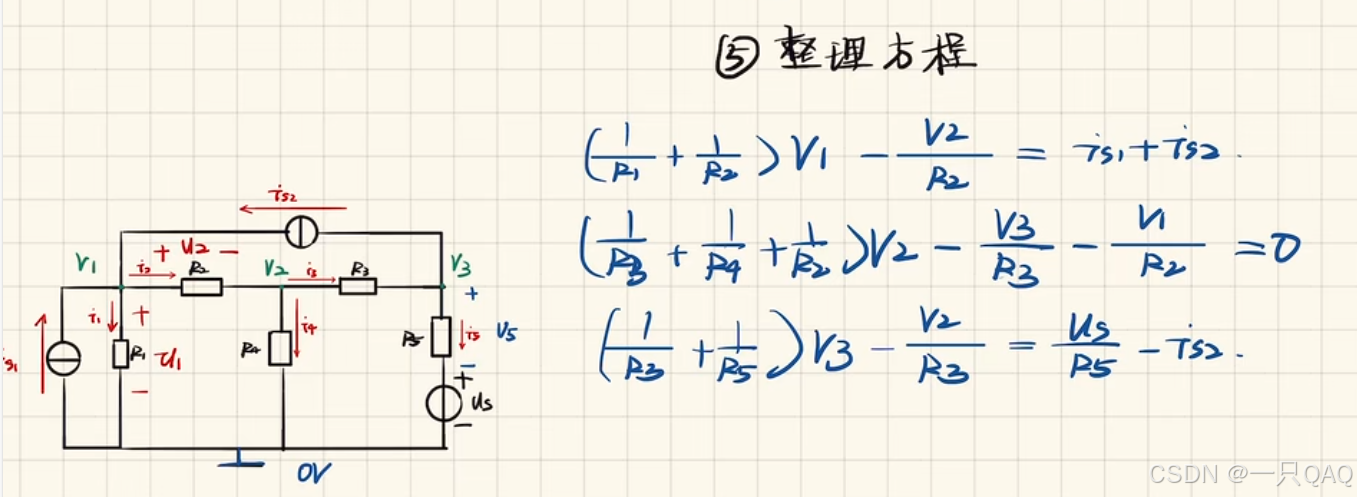 ⑤ 整理方程
(1/R1 + 1/R2)V1 - V2/R2 = is1 + is2.
(1/R3 + 1/R4 + 1/R2)V2 - V3/R3 - V1/R2 = 0
(1/R3 + 1/R5)V3 - V2/R3 = Us/R5 - is2.
is2
+ U2 -
V1 i2 R2 V2 i3 R3 V3
+
is1 i1 + R1 U1 - R4 i4 R5 i5 V5
-
+ Us -
0V
CSDN @一只QAQ